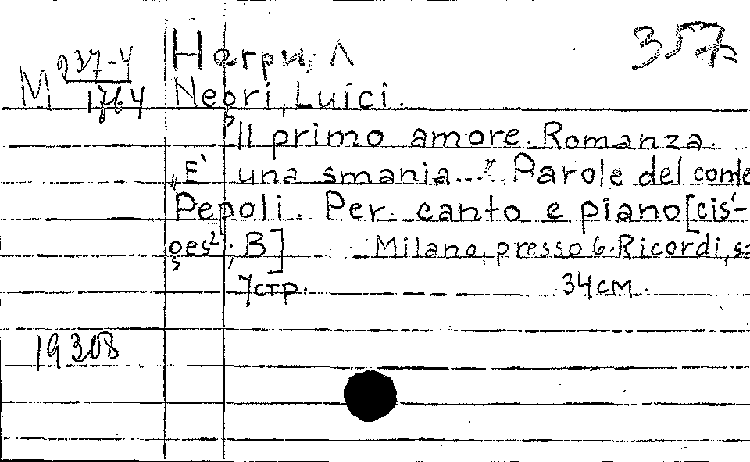 357
М 937-4 Негри, Л
1764 Negri, Luici.
Il primo amore. Romanza.
„E' una smania..." Parole del conte
Pepoli. Per canto e piano [cis'-
ges²; B] Milano, presso G. Ricordi, s=
7стр. 34см.
19308